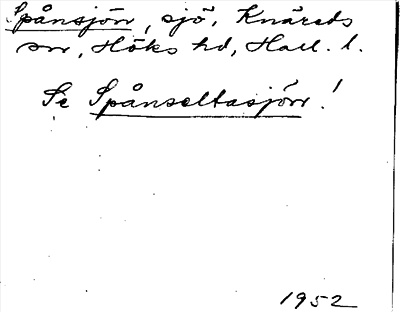 Spånsjön, sjö, Knäreds
sn, Höks hd, Hall. l.
Se Spånseltasjön!
1952